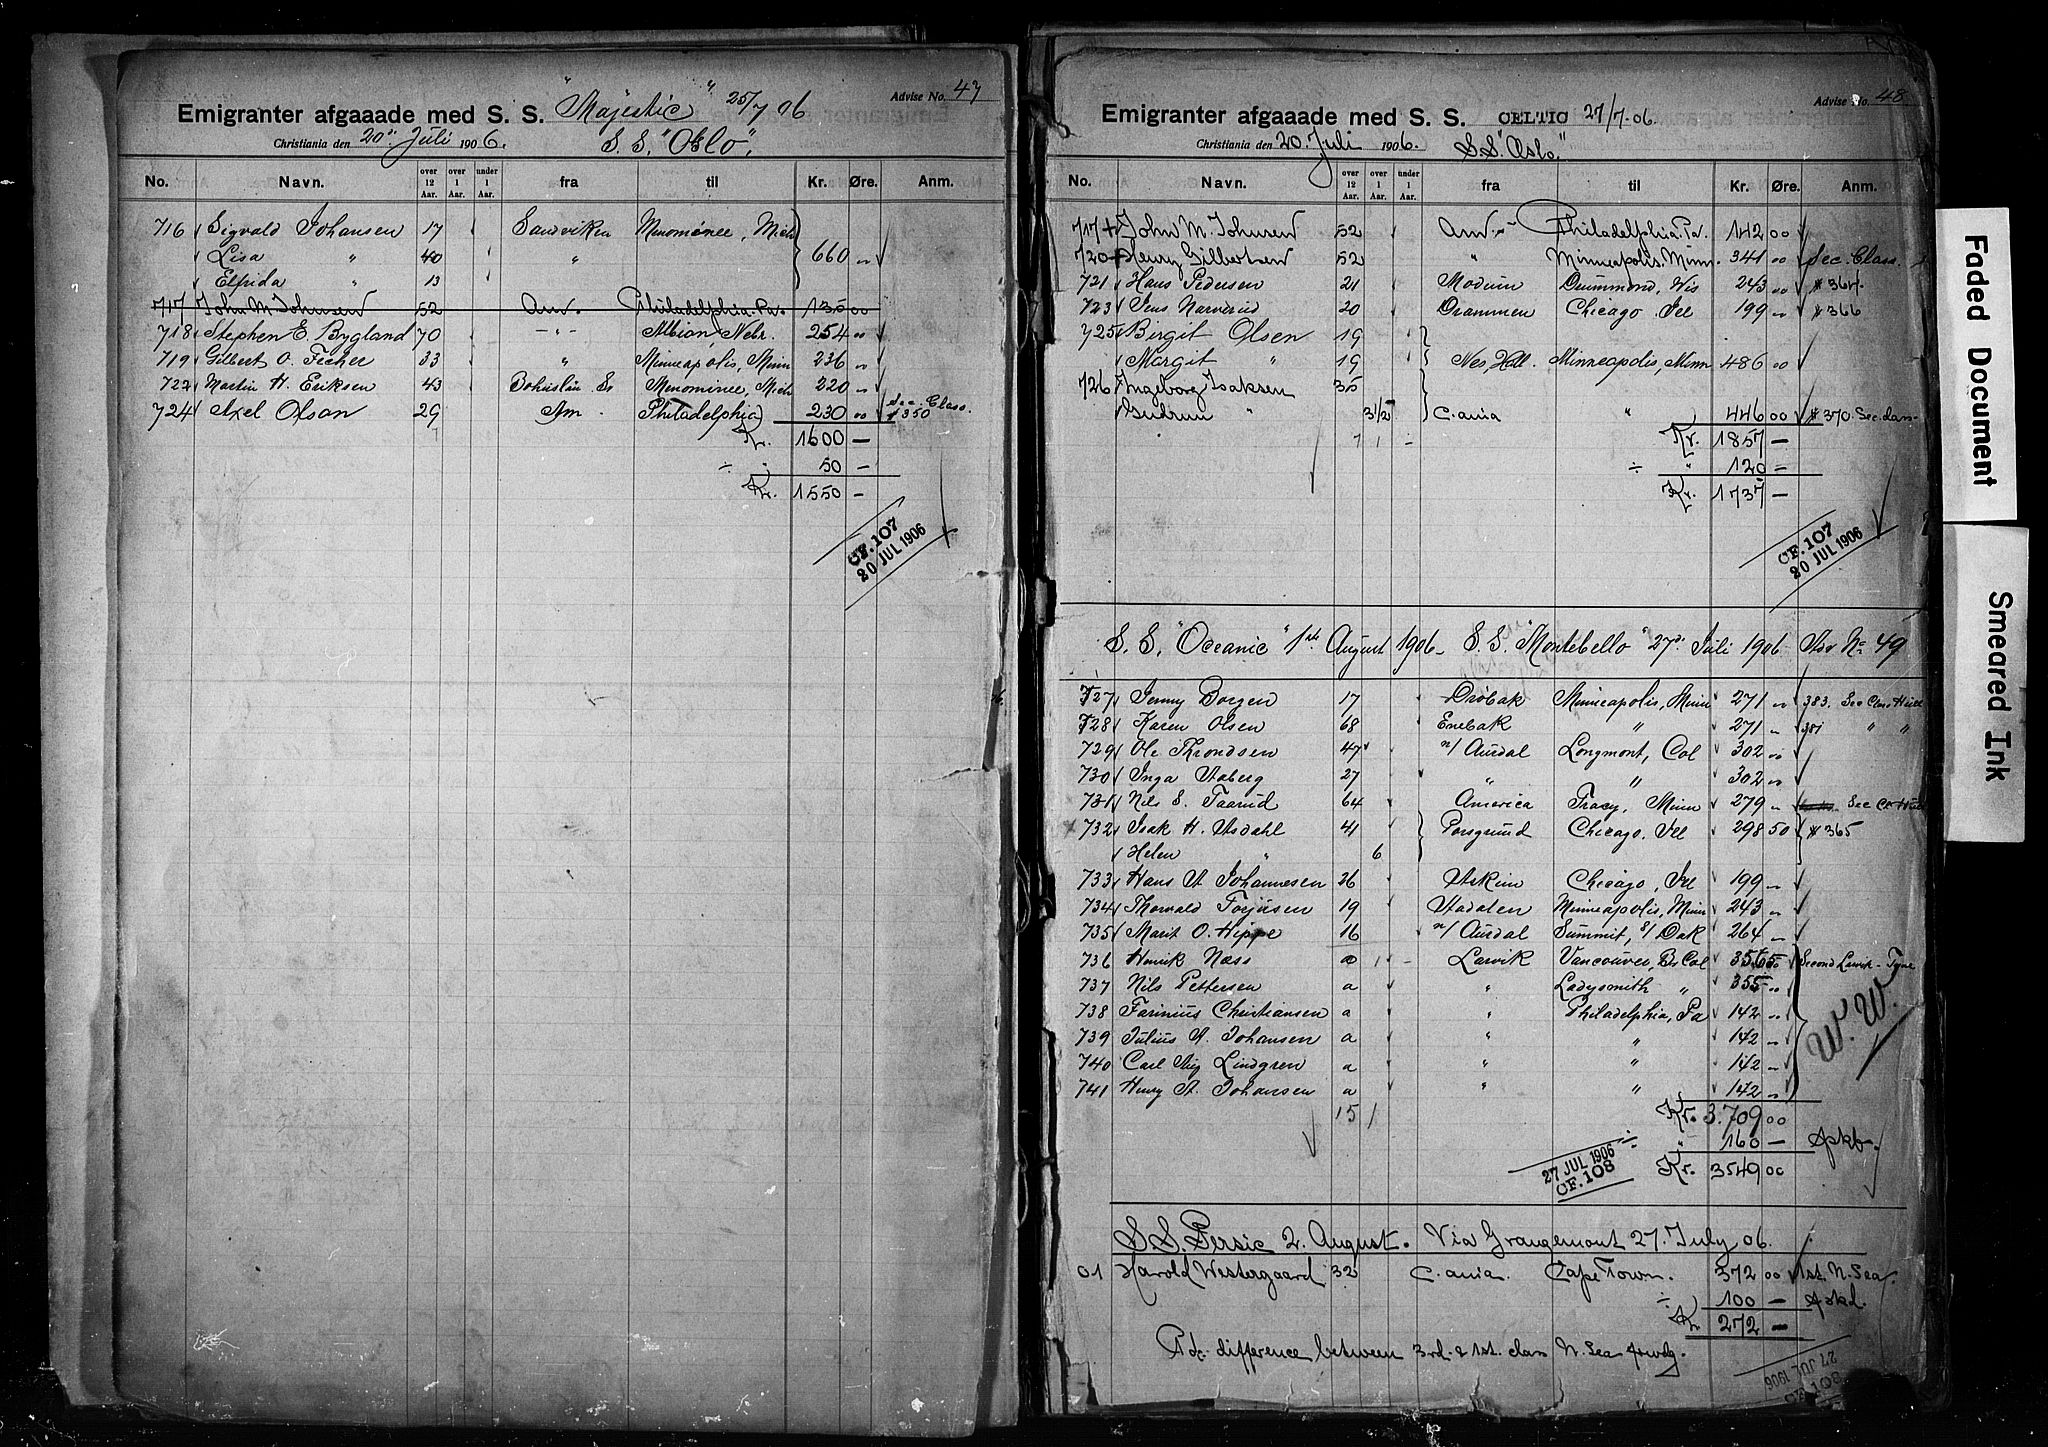 Advise No. 47
Emigranter afgaaede med S. S. "Majestic" 25/7 06
Christiania den 20de Juli 1906. S. S. "Oslo".
No. Navn. over 12 Aar. over 1 Aar. under 1 Aar. fra til Kr. Øre. Anm.
716 Sigvald Johansen 17 Sandviken Menominee, Mich
Lisa " 40 " 660 "
Elfrida " 13
717 John M. Johnsen 52 Am. Philadelphia Pa. 135 00
718 Stephen E. Bygland 70 -"- Albion, Nebr. 254 00
719 Gilbert O. Fecher 33 " Minneapolis, Minn 236 "
722 Martin H. Eriksen 43 Bohuslän Sv Menominee, Mich 220 "
724 Axel Olsan 29 Am Philadelphia 230 00 Sec. Class. $350
Kr. 1600 —
÷ " 50 —
Kr. 1550 —
CF. 107
20 JUL 1906
Advise No. 48
Emigranter afgaaede med S. S. CELTIC 27/7-06.
Christiania den 20. Juli 1906. S.S. "Oslo."
No. Navn. over 12 Aar. over 1 Aar. under 1 Aar. fra til Kr. Øre. Anm.
717 John M. Johnsen 52 Am Philadelphia Pa. 142 00
720 Henry Gilbertsen 52 " Minneapolis. Minn. 341 00 Sec. Class.
721 Hans Pedersen 21 Modum Drummond, Wis 243 00 $364
723 Jens Narverud 20 Drammen Chicago Ill 199 " $366
725 Birgit Olsen 19
Margit " 19 Nes, Hall. Minneapolis, Minn 486 00
726 Ingeborg Isaksen 35
Gudrun " 3 1/2 C.ania " 446 00 $370 Sec. class
7 1 - Kr. 1857 —
÷ " 120 —
Kr. 1737 —
CF. 107
20 JUL 1906
S. S. "Oceanic" 1ste August 1906 — S. S. "Montebello" 27de Juli 1906 Adv No 49
727 Jenny Borgen 17 Drøbak Minneapolis, Minn 271 " 383. Sec Class Hull
728 Karen Olsen 68 Enebak " 271 " 381 " "
729 Ole Throndsen 47 n/ Aurdal Longmont, Col 302 00
730 Inga Aaberg 27 " " 302 "
731 Nils S. Taarud 64 America Tracy, Minn 279 " Sec Cl Hull
732 Isak H. Asdahl 41 Porsgrund Chicago, Ill 298 50 $365
Helen " 6
733 Hans A Johannesen 26 Askim Chicago, Ill 199 "
734 Thorvald Torjusen 19 Aadalen Minneapolis, Minn 243 "
735 Marit O. Hippe 16 n/ Aurdal Summit, S/ Dak 264 "
736 Henrik Næss a Larvik Vancouver, Br Col Second Larvik - Tyne
737 Nils Pettersen a " Ladysmith " 355 "
738 Farinius Christiansen a " Philadelphia, Pa 142 "
739 Julius A. Johansen a " " 142 "
740 Carl Aug Lindgren a " " 142 "
741 Henry A. Johansen a " " 142 "
W. W.
15 1 Kr. 3.709 00
÷ " 160 — Apkb.
Kr. 3549 00
27 JUL 1906
CF. 108
S.S. Persic 2. August. Via Grangemont 27. July 06.
01 Harold Westergaard 32 C. ania. Cape Town. 372 00 1st. N. Sea.
÷ 100 — Apkd.
Kr 272 —
Pd. difference between 3rd. & 1st. class N. Sea
27 JUL 1906
CF. 108
Faded Document
Smeared Ink